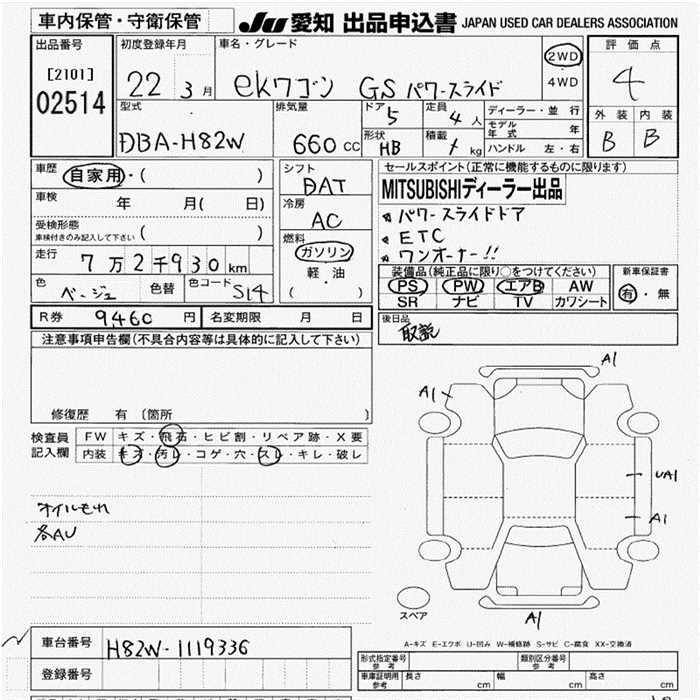 車内保管・守衛保管
JU 愛知 出品申込書 JAPAN USED CAR DEALERS ASSOCIATION
出品番号
[2101]
02514
初度登録年月
22 3 月
車名・グレード
ekワゴン GS パワースライド
2WD
4WD
評価点
4
外装 内装
B B
型式
DBA-H82W
排気量
660 CC
ドア 5
形状 HB
定員 4 人
積載 kg
ディーラー・並行
モデル年式 年
ハンドル 左・右
車歴
自家用・( )
車検 年 月( 日)
受検形態
車検付きのみ記入して下さい ( )
走行
7万2千930 km
色 ベージュ 色替 色コード S14
シフト
DAT
冷房
AC
燃料
ガソリン
軽・油
( )
セールスポイント(正常に機能するものに限ります)
MITSUBISHIディーラー出品
パワースライドドア
ETC
ワンオーナー!!
装備品(純正品に限り○をつけてください)
PS PW エアB AW
SR ナビ TV カワシート
新車保証書
有・無
R券 9,460 円 名変期限 月 日
後日品
取説
注意事項申告欄(不具合内容等は具体的に記入して下さい)
修復歴 有〔箇所 〕
検査員
記入欄
FW キズ・飛石・ヒビ割・リペア跡・X要
内装 キズ・汚レ・コゲ・穴・スレ・キレ・破レ
オイルもれ
各AU
A1
A1
UA1
A1
スペア
A1
A-キズ E-エクボ U-凹み W-補修跡 S-サビ C-腐食 XX-交換済
車台番号 H82W-1119336
登録番号
形式指定番号
参考
類別区分番号
参考
車庫証明用
参考
長さ cm 幅 cm 高さ cm